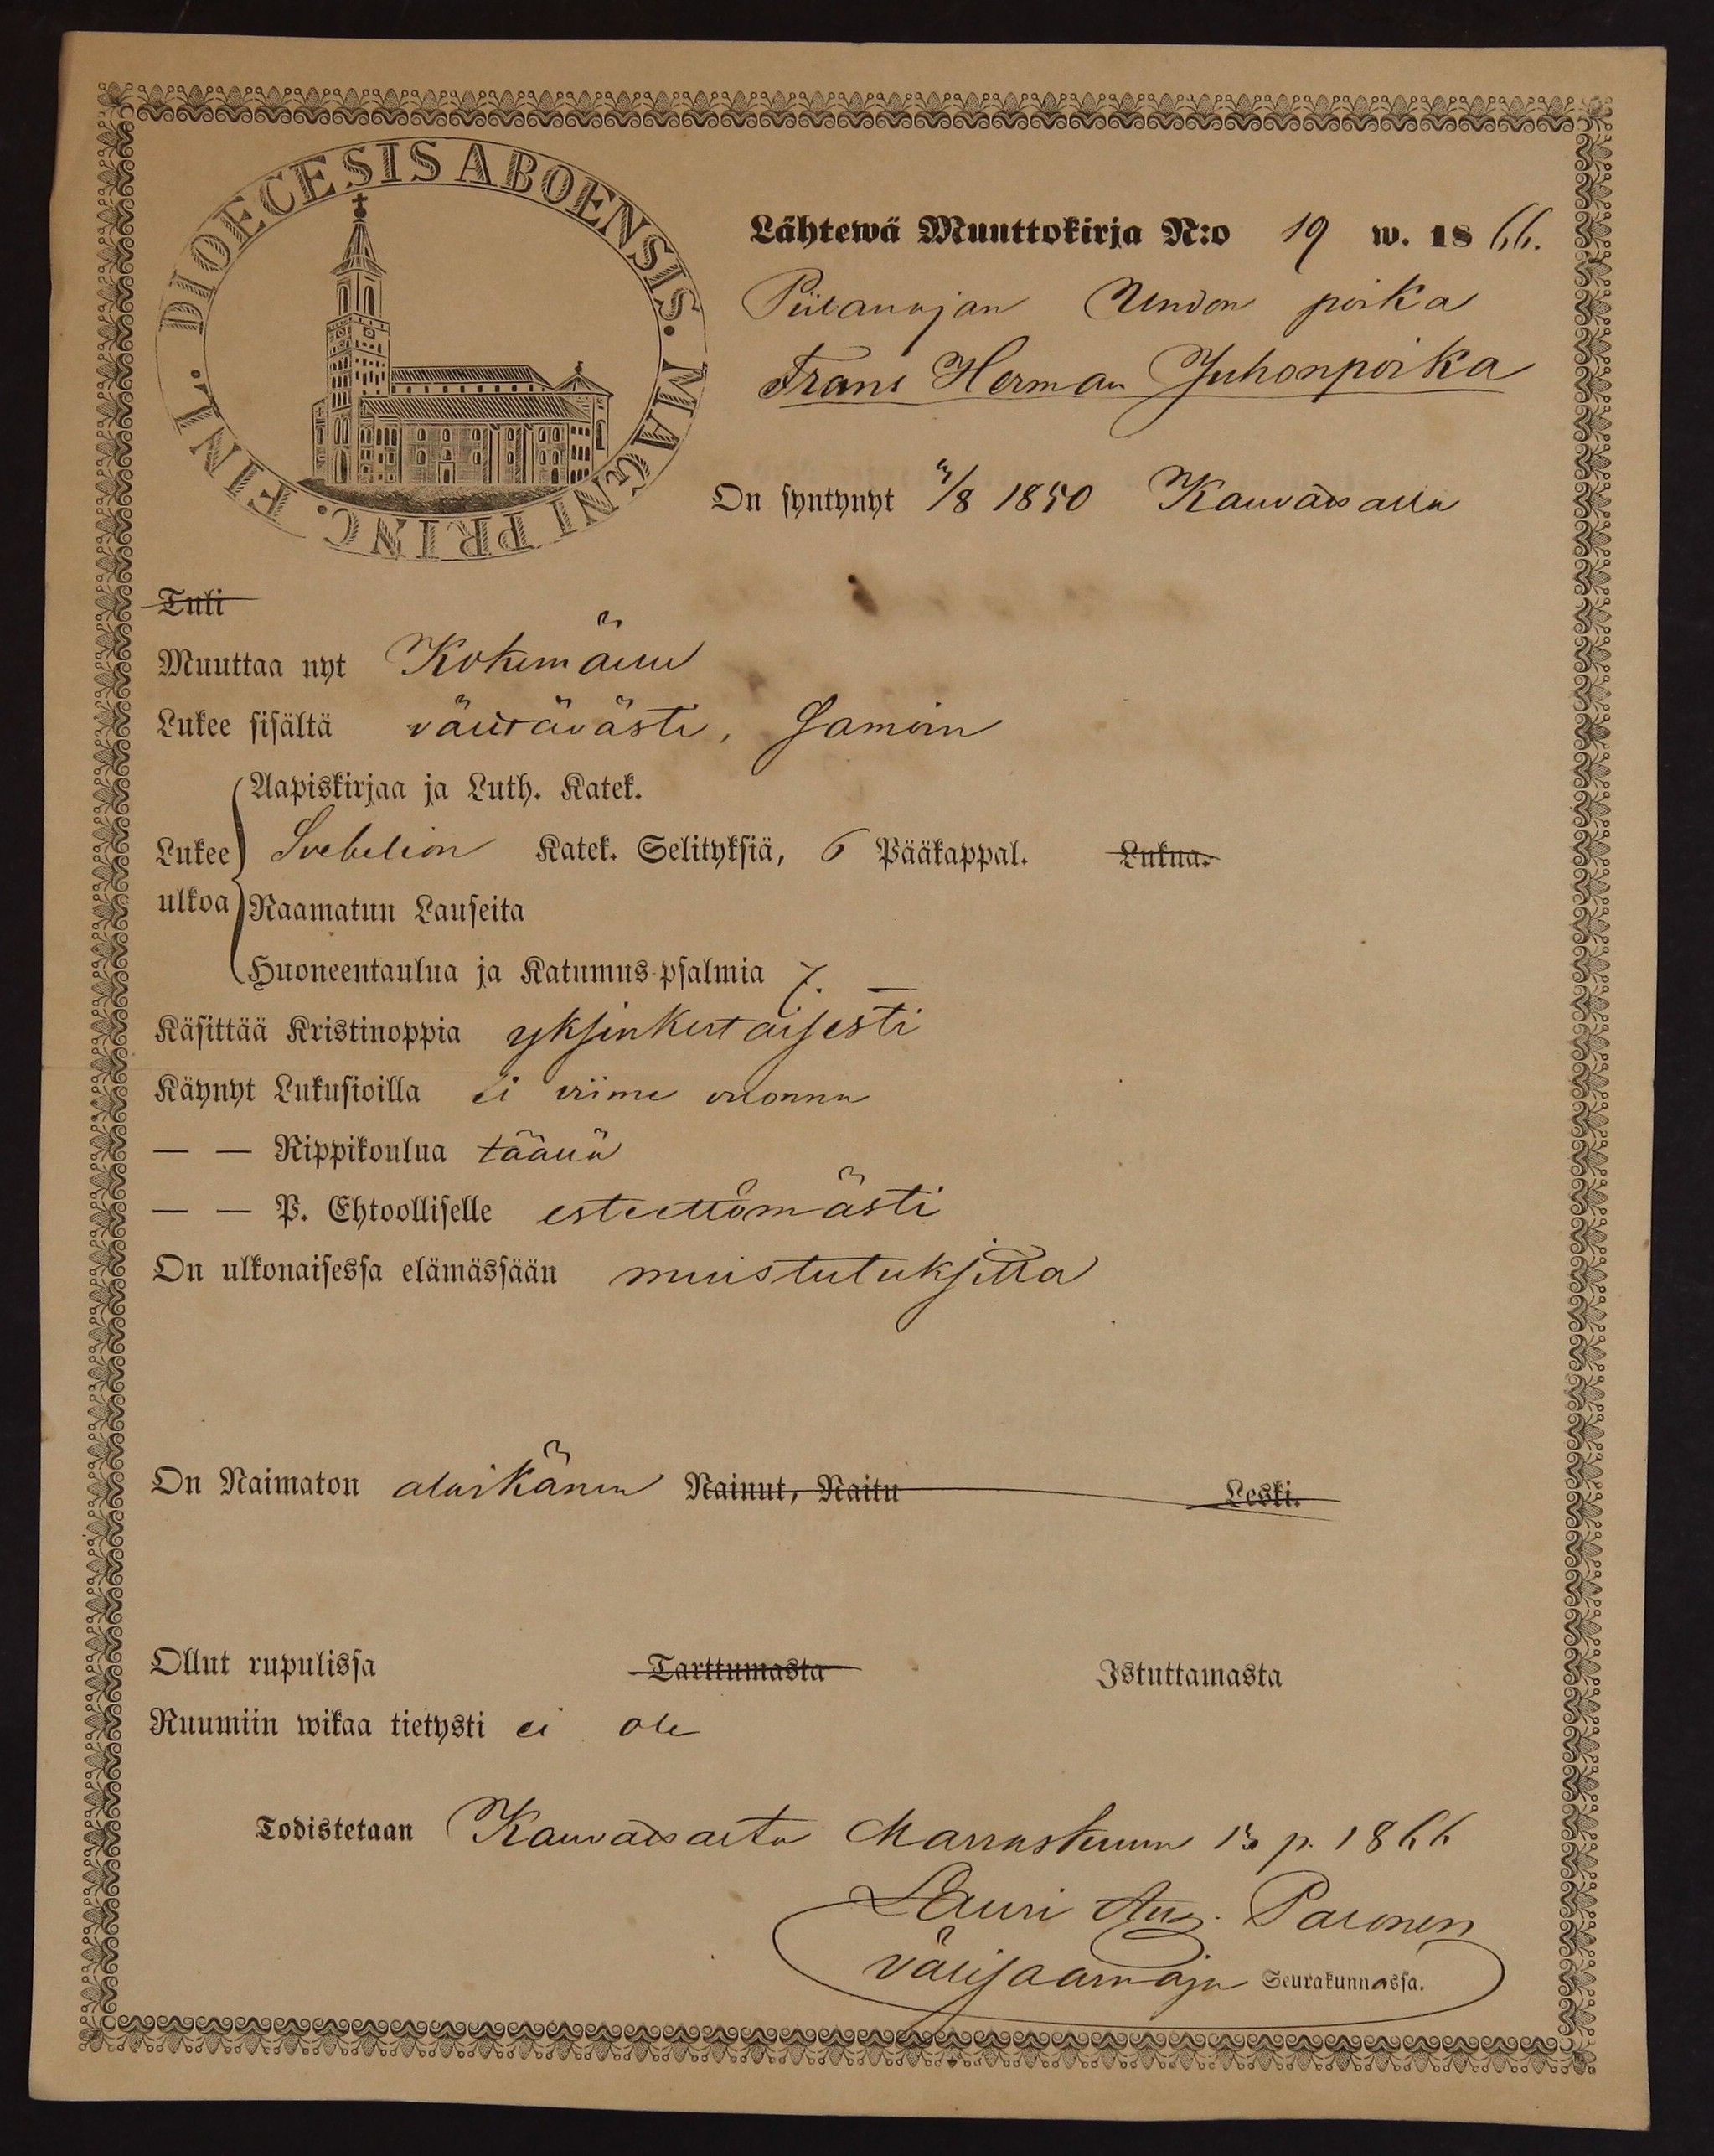 DIOECESIS ABOENSIS. MAGNI PRINC. FINL.
Lähtewä Muuttokirja N:o 19 w. 1866.
Uudon poika
Frans Herman Juhonpoika
On syntynyt /8 1850 Kauvatsalla
Tuli
Muuttaa nyt Kokemäkeen
Lukee sisältä välttävästi, Samoin
Aapiskirjaa ja Luth. Katek.
Lukee ulkoa Svebelion Katek. Selityksiä, 6 Pääkappal. Lukua.
Raamatun Lauseita
Huoneentaulua ja Katumus-psalmia 7. —
Käsittää Kristinoppia yksinkertaisesti
Käynyt Lukusioilla ei viime vuonna
— — Rippikoulua täällä
— — P. Ehtoolliselle esteettömästi
On ulkonaisessa elämässään muistutuksitta
On Naimaton alaikänen Nainut, Naitu Leski.
Ollut rupulissa Tarttumasta Istuttamasta
Ruumiin wikaa tietysti ei ole
Todistetaan Kauvatsalta Marraskuun 13 p. 1866
Lauri Aug. Palonen
välisaarnaaja Seurakunnassa.